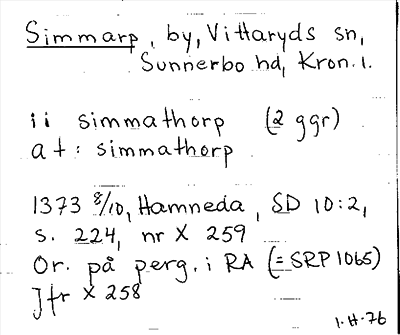 Simmarp, by, Vittaryds sn,
Sunnerbo hd, Kron. l.
ii simmathorp (2 ggr)
at: simmathorp
1373 8/10, Hamneda, SD 10:2,
s. 224, nr X 259
Or. på perg. i RA (= SRP 1065)
Jfr X 258
1.H.76